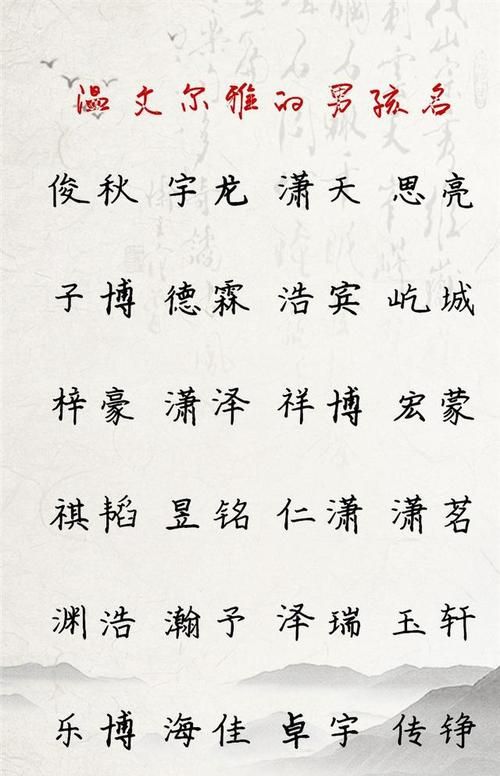 温文尔雅的男孩名
俊秋 宇龙 潇天 思亮
子博 德霖 浩宾 屹城
梓豪 潇泽 祥博 宏蒙
祺韬 昱铭 仁潇 潇茗
渊浩 瀚予 泽瑞 玉轩
乐博 海佳 卓宇 传铮